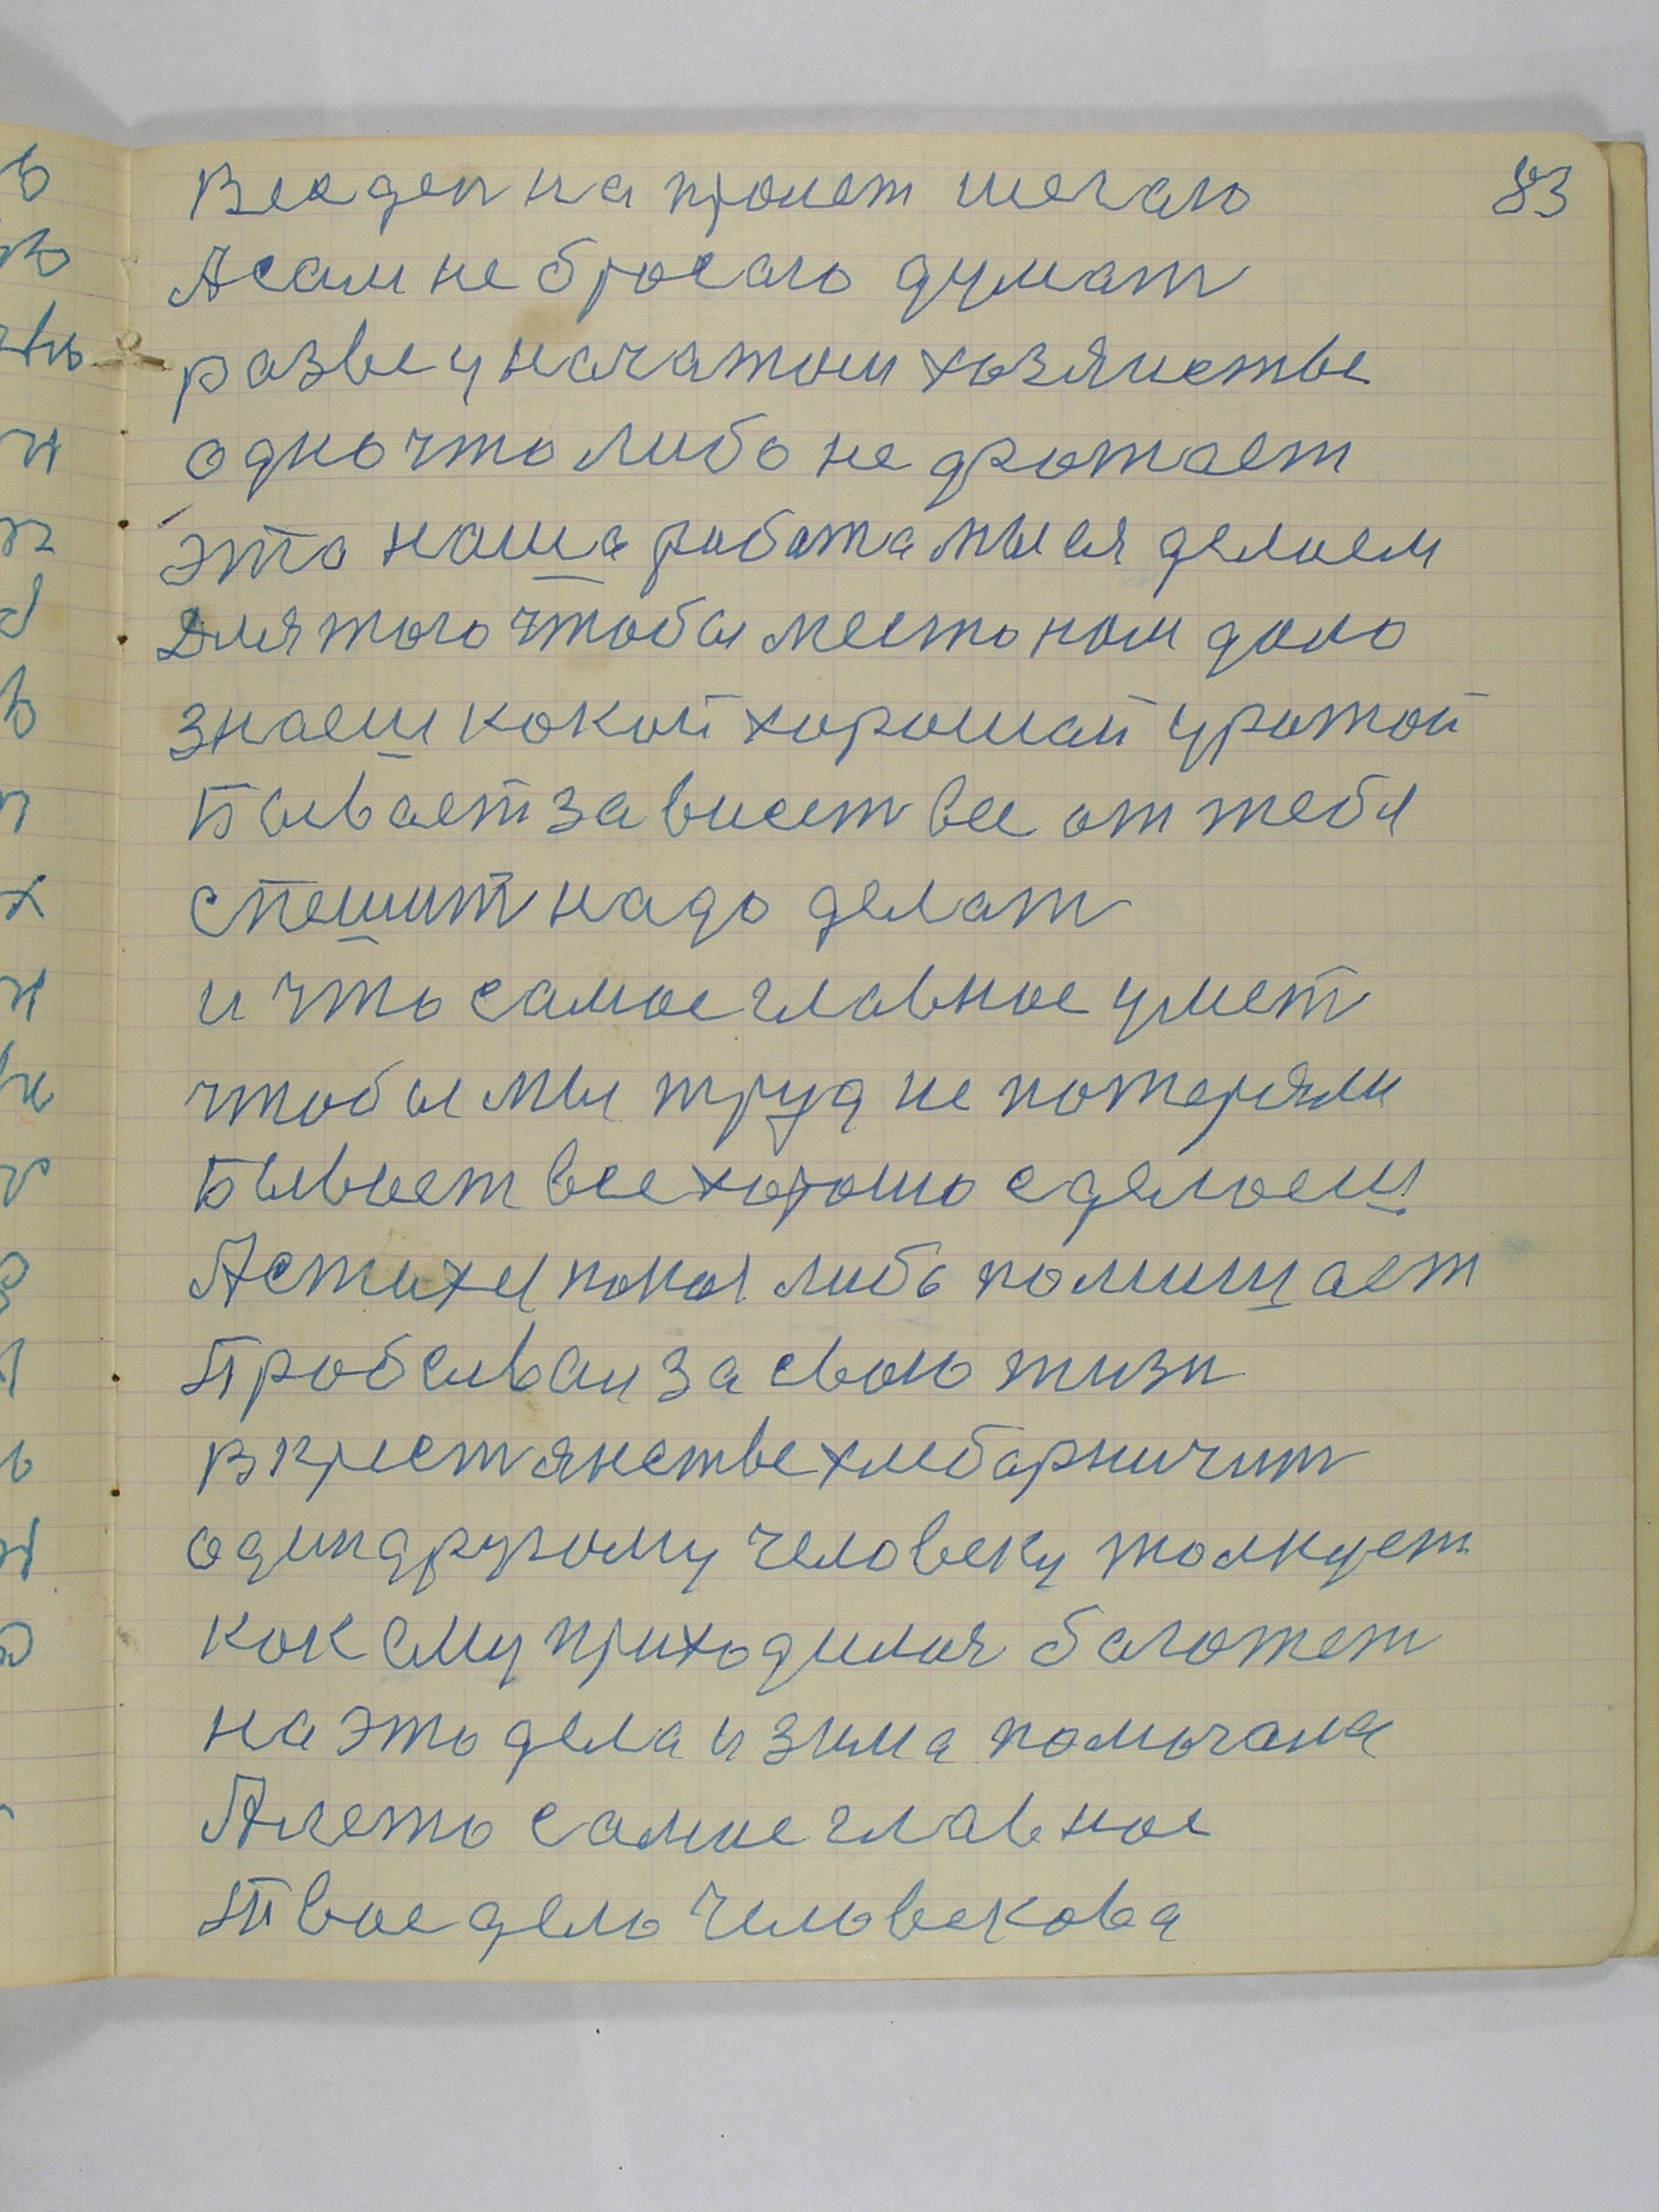 Все ден на пролет шегаю 83
А сам не бросаю думат
розве у начатом хозяистве
одно что либо не дротает
это наша работа мы ея делоем
Для того чтобы место ном дало
знаеш кокой хорошай урожой
Бывает зависет все от тебя
спешит надо делат
и что самое главное умет
чтобы мы труд не потеряли
Бывает все хорошо сделоеш
А стихея покоя либо помишает
Пробывай за свою жизн
в крестянстве хлебарничит
один другому человеку толкует
кок ему приходилоя богатет
на это дела и зима помогала
А лето самое главное
Твое дело Человекова